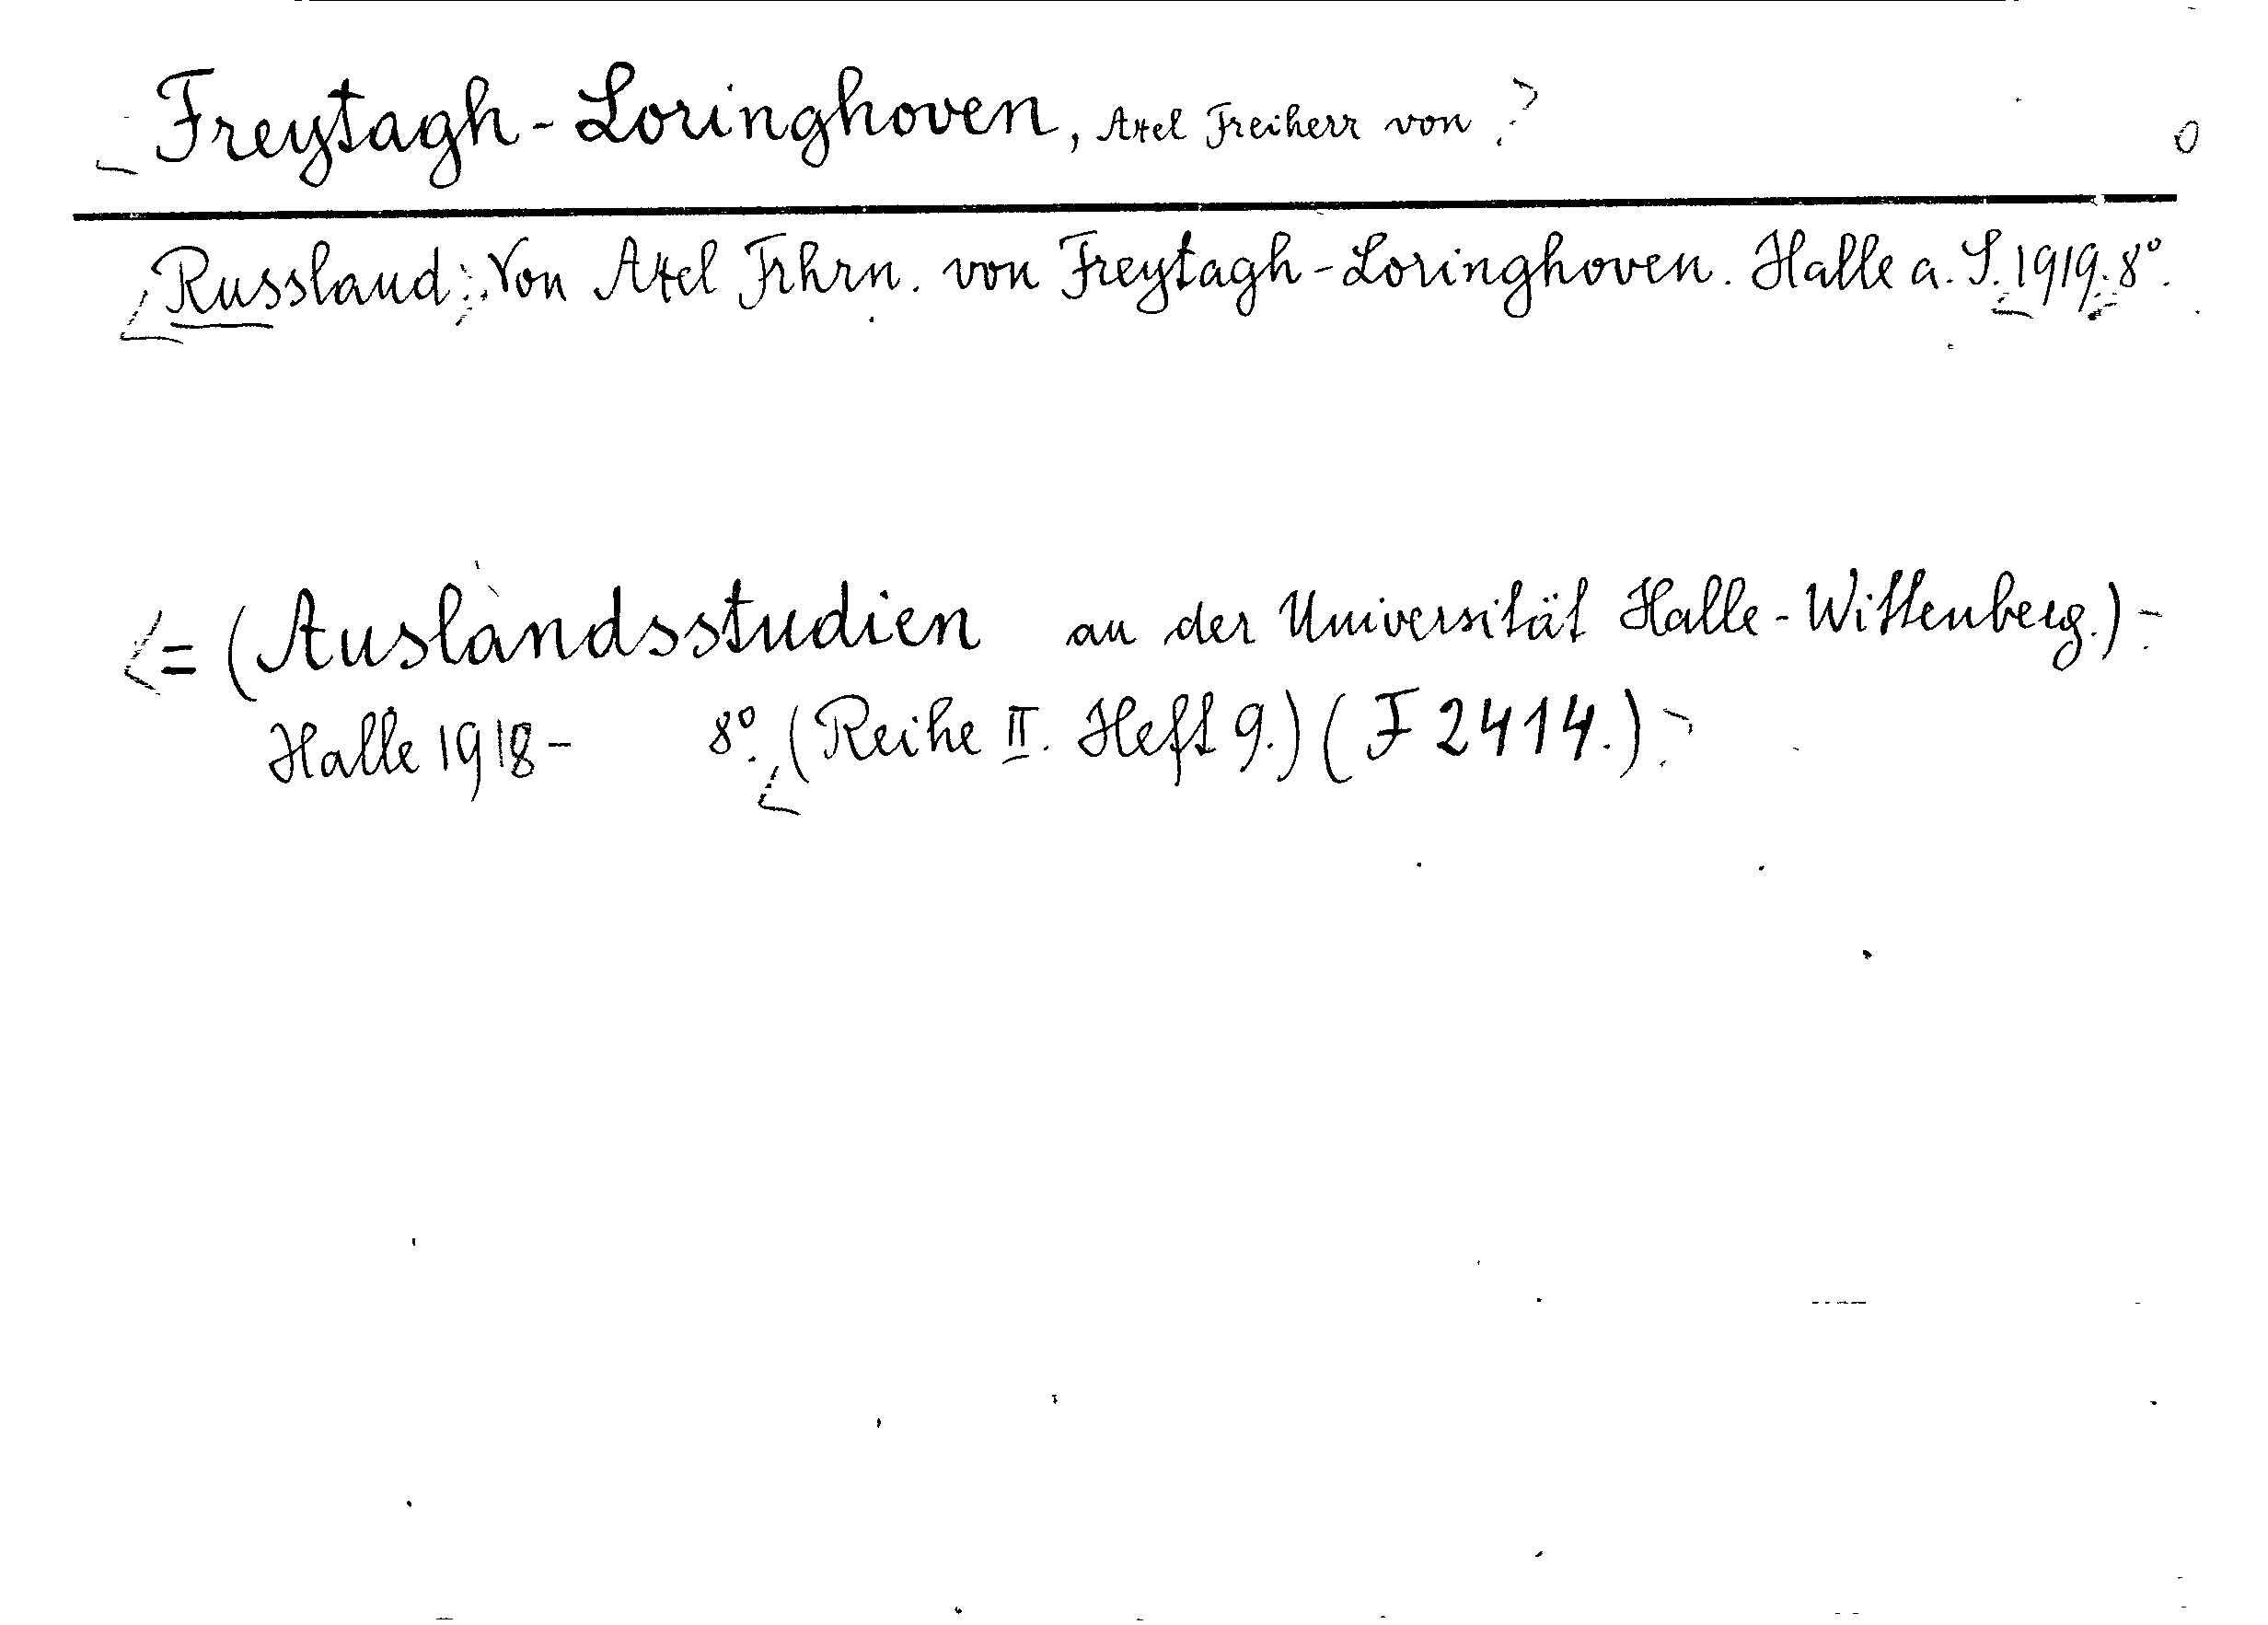 Freytagh-Loringhoven, Axel Freiherr von
Russland. Von Axel Frhrn. von Freytagh-Loringhoven. Halle a. S. 1919. 8°.
= (Auslandsstudien an der Universität Halle-Wittenberg.)
Halle 1918- 8°. (Reihe II. Heft 9.) (F 2414.)